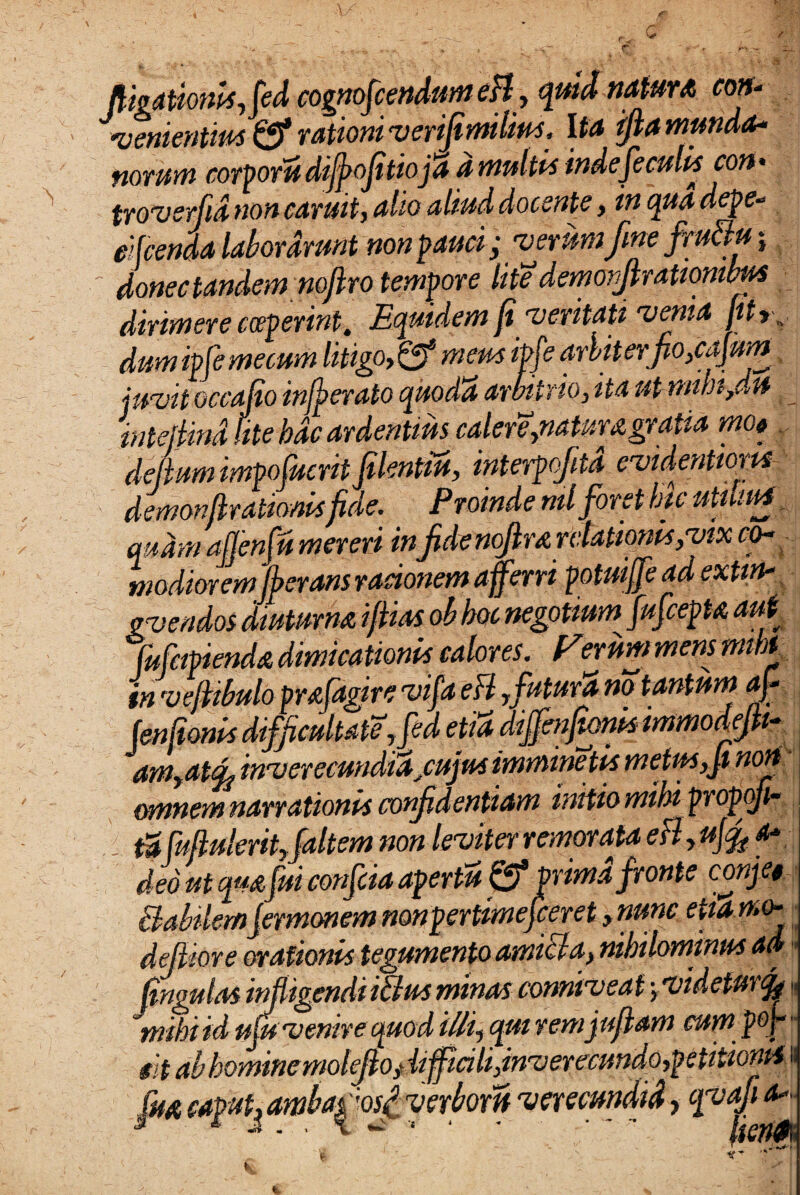 ſtigationis, ſed cognoſcendum eſt, quid naturæ con-
venientius & rationi veriſimilius. Ita iſta munda-
norum corporū diſpoſitio jā à multis inde ſeculis con-
troverſiâ non caruit, alio aliud docente, in quâ depe-
eiſcenda laborârunt non pauci; verùm ſine fructu;
donec tandem noſtro tempore litē demonſtrationibus
dirimere cœperint. Equidem ſi veritati venia ſit,
dum ipſe mecum litigo, & meus ipſe arbiter fio, caſum
juvit occaſio inſperato quodā arbitrio, ita ut mihi, dū
inteſtinâ lite hâc ardentiùs calerē, naturæ gratia mo-
deſtum impoſuerit ſilentiū, interpoſitâ evidentioris
demonſtrationis fide. Proinde nil foret hîc utilius
quàm aſſenſū mereri in fide noſtræ relationis, vix cō-
modiorem ſperans racionem afferri potuiſſe ad extin-
gvendos diuturnæ iſtias ob hoc negotium ſuſceptæ aut
ſuſcipiendæ dimicationis calores. Verùm mens mihi
in veſtibulo præſagire viſa eſt, futurā nō tantùm aſ-
ſenſionis difficultatē, ſed etiā diſſenſionis immodeſti-
am, atq; inverecundiā, cujus imminētis metus, ſi non
omnem narrationis confidentiam initio mihi propoſi-
tā ſuſtulerit, ſaltem non leviter remorata eſt, uſq; a-
deò ut quæ ſui conſcia apertū & primâ fronte conje-
ctabilem ſermonem non pertimeſceret, nunc etiā mo-
deſtiore orationis tegumento amicta, nihilominus ad
ſingulas infligendi ictus minas conniveat; videturq;
mihi id uſu venire quod illi, qui rem juſtam cum poſ-
cit ab homine moleſto, difficili, inverecundo, petitionis
ſuæ caput, ambagiosâ verborū verecundiâ, qvaſi a-
liena